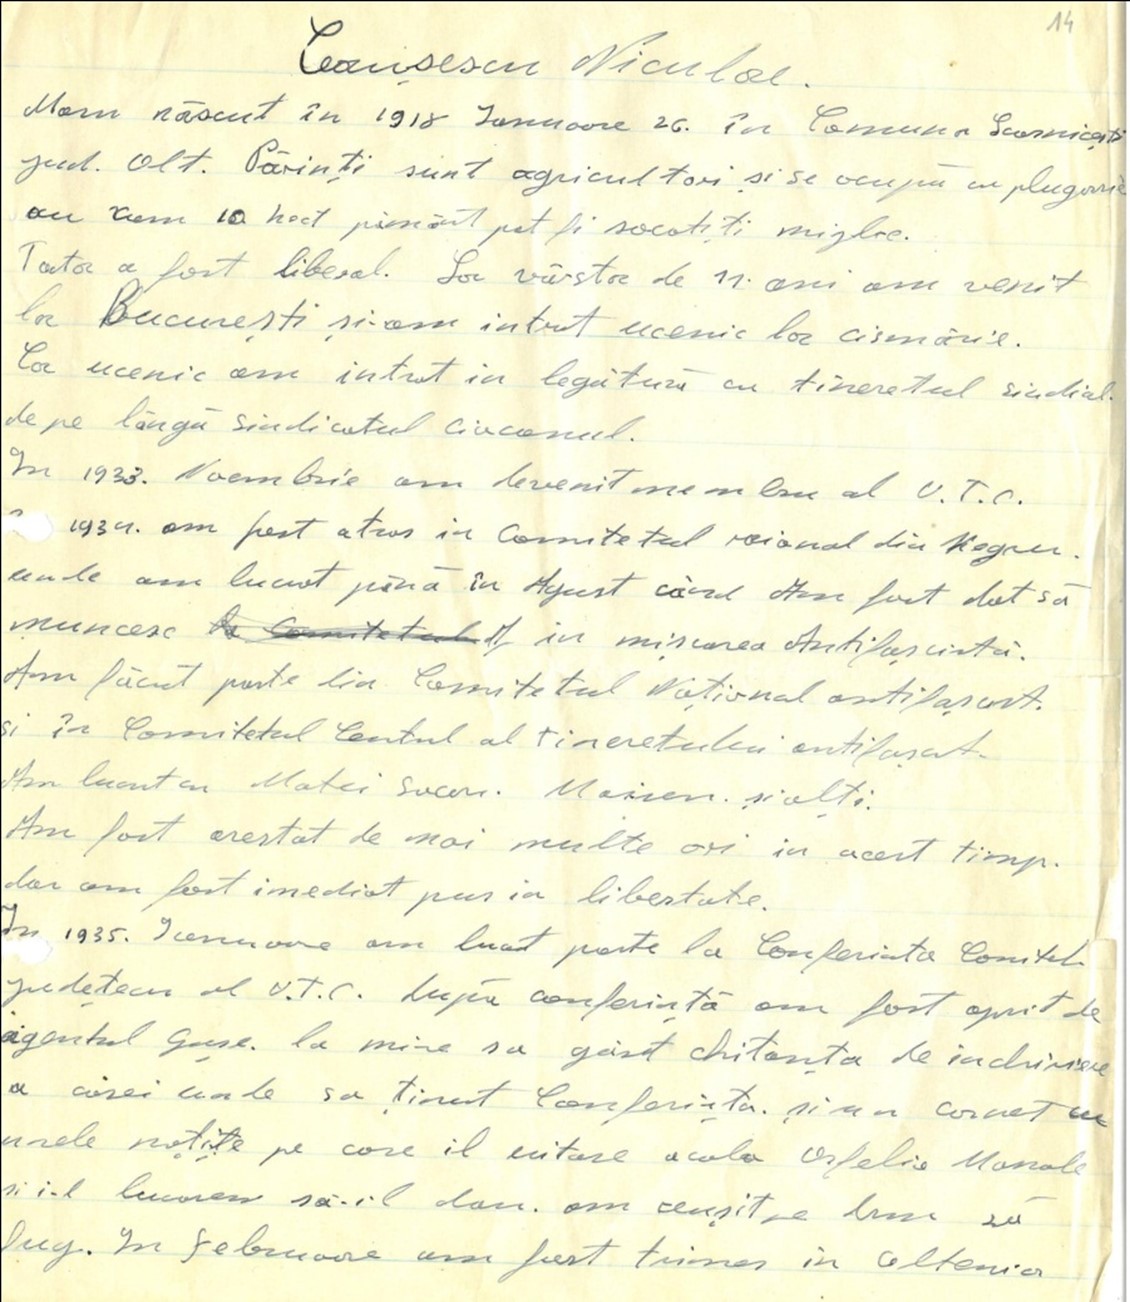 14
Ceaușescu Niculae.
Mam născut în 1918 Ianuoare 26. în Comuna Scornicești
jud. Olt. Părinți sunt agricultori și se ocupă cu plugărie
au cam 10 hect pământ pot fi socotiți mijloc.
Tata a fost liberal. La vârsta de 11. ani am venit
la București și-am intrat ucenic la cismărie.
Ca ucenic am intrat in legătură cu tineretul sindical.
de pe lângă sindicatul Ciocanul.
In 1933. Noembrie am devenit membru al U.T.C.
1934. am fost atras in Comitetul raional din Negru.
unde am lucrat până în Agust când Am fost dat să
muncesc la Comitetul in mișcarea Antifașistă.
Am făcut parte din Comitetul Național antifașist.
si în Comitetul Central al Tineretului antifașist.
Am lucrat cu Matei Socor. și alți.
Am fost arestat de mai multe ori in acest timp.
dar am fost imediat pus in libertate.
In 1935. Ianuoare am luat parte la Conferinta Comitet
județean al U.T.C. după conferință am fost oprit de
agentul la mine sa găsit chitanța de inchiriere
a casei unde sa ținut Conferința. și un carnet cu
unele notițe pe care il uitase acolo Ofelia Manole
si i-l luoarem să-i-l dau. am reușit pe drum să
fug. In Februoare am fost trimes in Oltenia